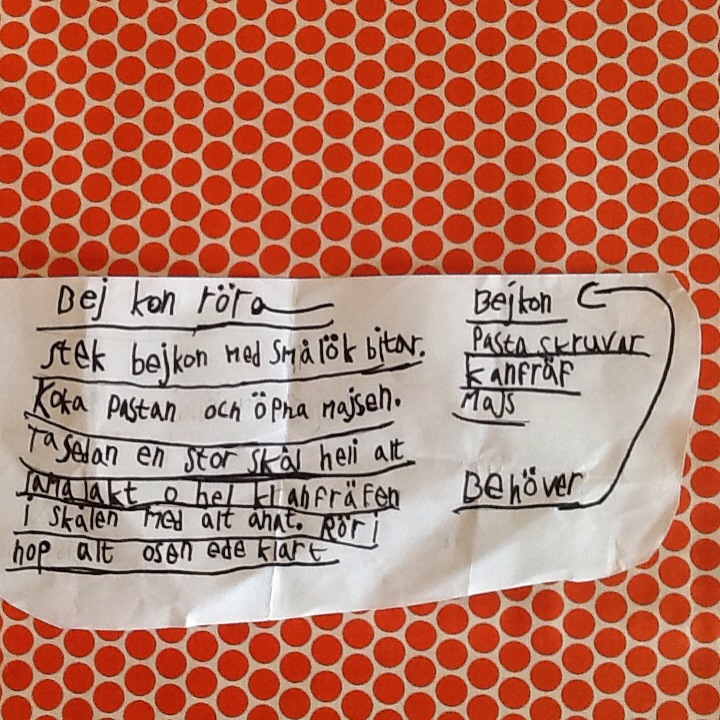 Bej kon röra
stek bejkon med små lök bitar.
Koka pastan och öpna majsen.
Ta sedan en stor skål heli alt
i skålen med alt anat. Rör i
hop alt osen ede klart
Bejkon
Pasta skruvar
kanfräf
Majs
Behöver